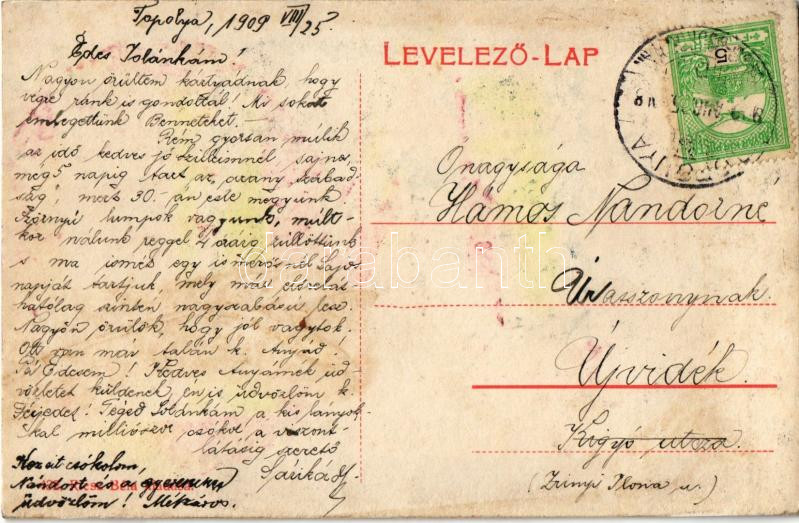 Topolya, 1909 VIII/25.
Édes Iolánkám!
Nagyon örültem kártyádnak, hogy
végre ránk is gondoltál! Mi sokat
emlegettünk Benneteket. -
Rém gyorsan mulik
az idő kedves jó szüleimnél, sajnos,
még 5 napig tart az "arany szabad-
ság", mert 30.-án este megyünk.
Szörnyű lumpok vagyunk, mult-
kor nálunk reggel 4 óráig züllöttünk
s ma ismét egy ismerősnél
napját tartjuk, mely már előrelát-
hatólag szintén nagyszabású lesz.
Nagyon örülök, hogy jól vagytok!
Ott van már talán k. Anyád?
Pá Édesem! Kedves Anyámék üd-
vözletét küldenek, én is üdvözlöm k.
Férjedet! Téged Iolánkám a kis lányok-
kal milliószor csókol a viszont-
látásig szerető
Sárikád
Kezeit csókolom,
Nándort és a gyerekeket
üdvözlöm! Mészáros.
LEVELEZŐ-LAP
Őnagysága
Hámos Nándorné
Úrasszonynak.
Újvidék.
Kigyó utcza.
(Zrinyi Ilona u.)
TOPOLYA
darabanth